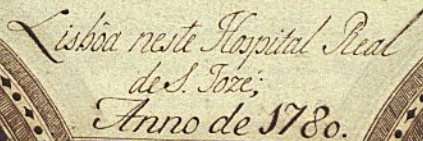 Lisbôa neste Hospital Real
de S. Jozé;
Anno de 1780.